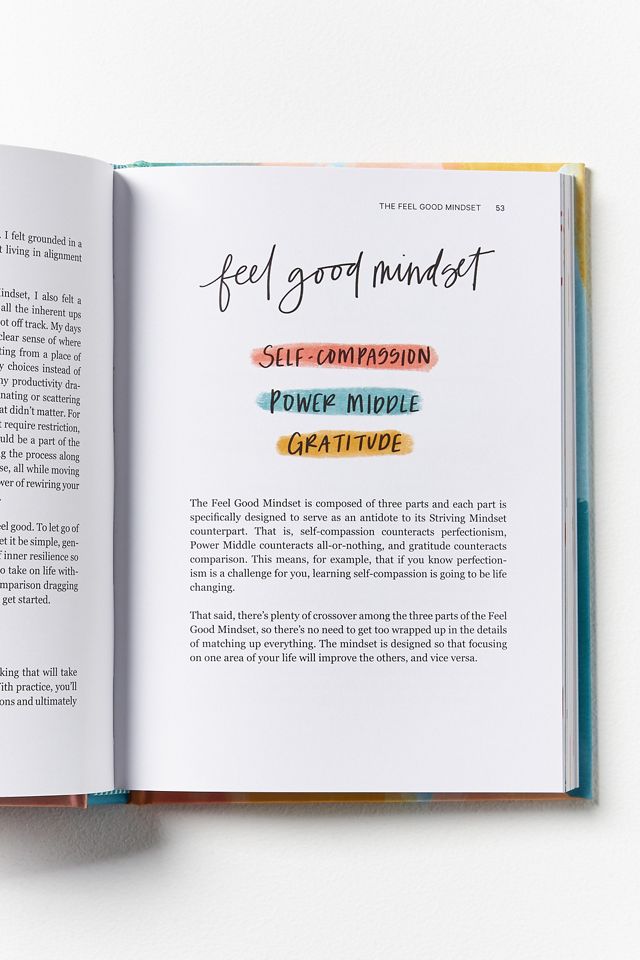 . I felt grounded in a
t living in alignment
indset, I also felt a
all the inherent ups
ot off track. My days
clear sense of where
ting from a place of
y choices instead of
ny productivity dra-
nating or scattering
at didn't matter. For
t require restriction,
uld be a part of the
g the process along
se, all while moving
wer of rewiring your
eel good. To let go of
et it be simple, gen-
f inner resilience so
o take on life with-
mparison dragging
get started.
king that will take
ith practice, you'll
ons and ultimately
THE FEEL GOOD MINDSET 53
feel good mindset
SELF-COMPASSION
POWER MIDDLE
GRATITUDE
The Feel Good Mindset is composed of three parts and each part is
specifically designed to serve as an antidote to its Striving Mindset
counterpart. That is, self-compassion counteracts perfectionism,
Power Middle counteracts all-or-nothing, and gratitude counteracts
comparison. This means, for example, that if you know perfection-
ism is a challenge for you, learning self-compassion is going to be life
changing.
That said, there's plenty of crossover among the three parts of the Feel
Good Mindset, so there's no need to get too wrapped up in the details
of matching up everything. The mindset is designed so that focusing
on one area of your life will improve the others, and vice versa.